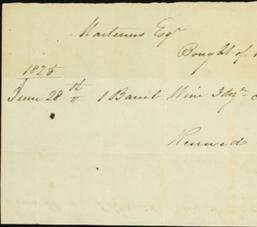 Martinus Esqr
Bought of
1825
June 28th 1 Barrel Wine
Received